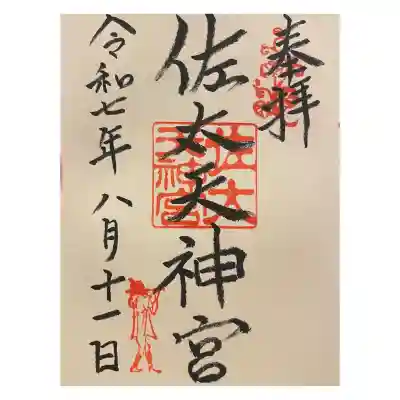 奉拝
佐太天神宮
佐太天神宮
令和七年八月十一日